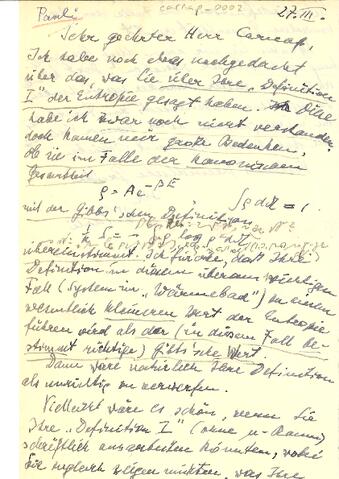 Pauli
carnap-0007
27. III.
Sehr geehrter Herr Carnap,
Ich habe noch etwas nachgedacht
über das, was Sie über Ihre „Definition
I" der Entropie gesagt haben. Diese
habe ich zwar noch nicht verstanden,
doch kamen mir große Bedenken,
ob sie im Falle der kanonischen
Gesamtheit
ρ = A e^{-βE} ∫ρ dx = 1
mit der Gibbs'schen Definition
S = - ∫ρ log ρ
übereinstimmt. Ich fürchte, daß Ihre
Definition in diesem überaus wichtigen
Fall (System im „Wärmebad") zu einem
wesentlich kleineren Wert der Entropie
führen wird als der (in diesem Fall be-
stimmt richtige) Gibbs'sche Wert.
Dann wäre natürlich Ihre Definition
als unrichtig zu verwerfen.
Vielleicht wäre es schön, wenn Sie
Ihre „Definition I" (ohne μ-Raum)
schriftlich ausarbeiten könnten, wobei
Sie zugleich zeigen müßten, was Ihre